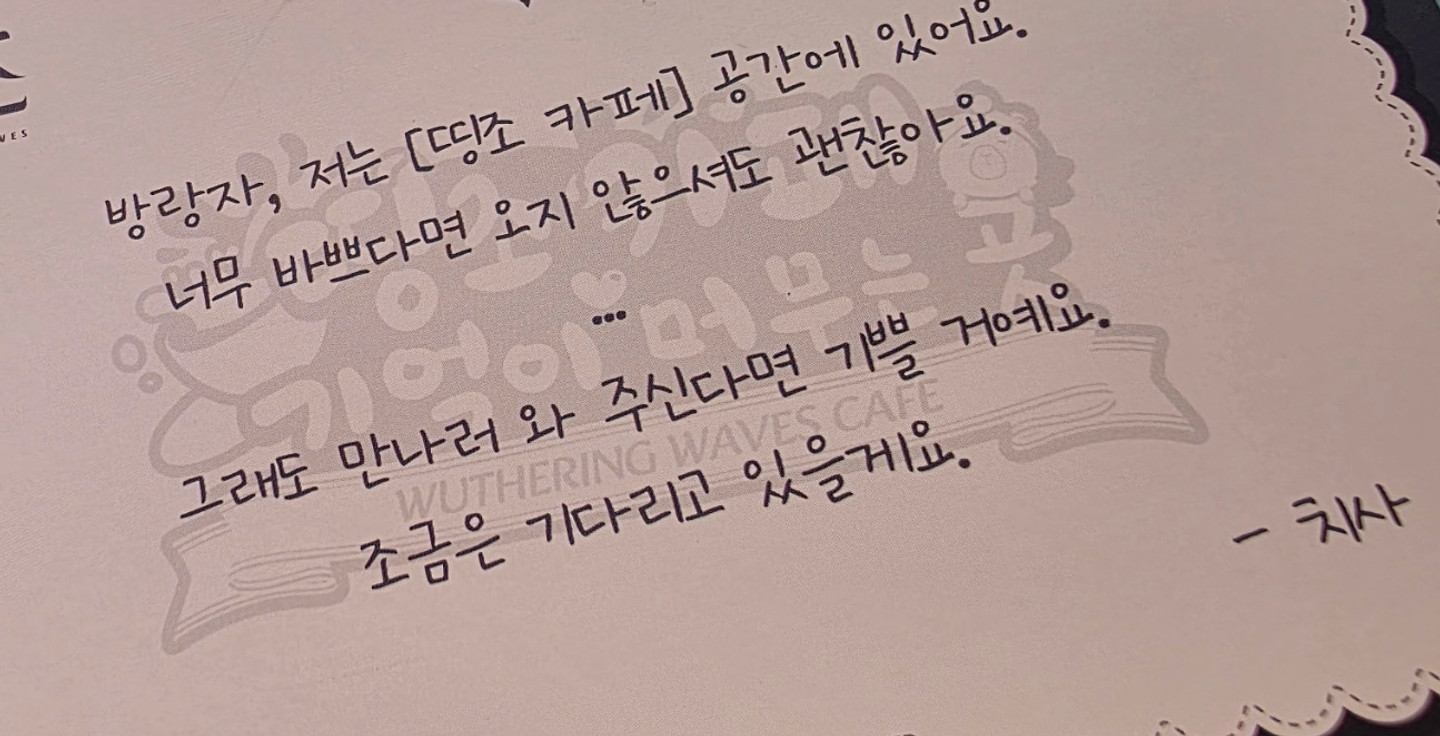 VES
방랑자, 저는 [띵조 카페] 공간에 있어요.
너무 바쁘다면 오지 않으셔도 괜찮아요.
...
그래도 만나러 와 주신다면 기쁠 거예요.
조금은 기다리고 있을게요.
- 치사
띵조 카페
기억이 머무는 곳
WUTHERING WAVES CAFE